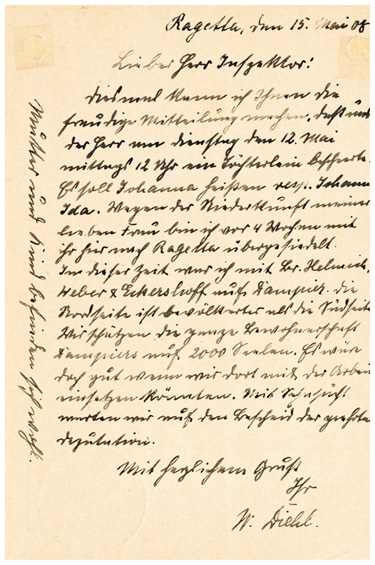 Ragetta, den 15. Mai 08
Lieber Herr Inspektor!
Diesmal kann ich Ihnen die
freudige Mitteilung machen, daß uns
der Herr am Dienstag den 12. Mai
mittags 12 Uhr ein Töchterlein bescherte.
Es soll Johanna heißen resp. Johanna
Ida. Wegen der Niederkunft meiner
lieben Frau bin ich vor 4 Wochen mit
ihr hier nach Ragetta übergesiedelt.
In dieser Zeit war ich mit Br. Helmich,
Weber & Eckershoff auf Dampier. Die
Nordseite ist bevölkerter als die Südseite
Wir schätzen die ganze Bewohnerschaft
Dampiers auf 2000 Seelen. Es wäre
doch gut wenn wir dort mit der Arbeit
einsetzen könnten. Mit Sehnsucht
warten wir auf den Bescheid der geehrten
Deputation.
Mit herzlichem Gruß
Ihr
W. Diehl.
Mutter und Kind befinden sich wohl.